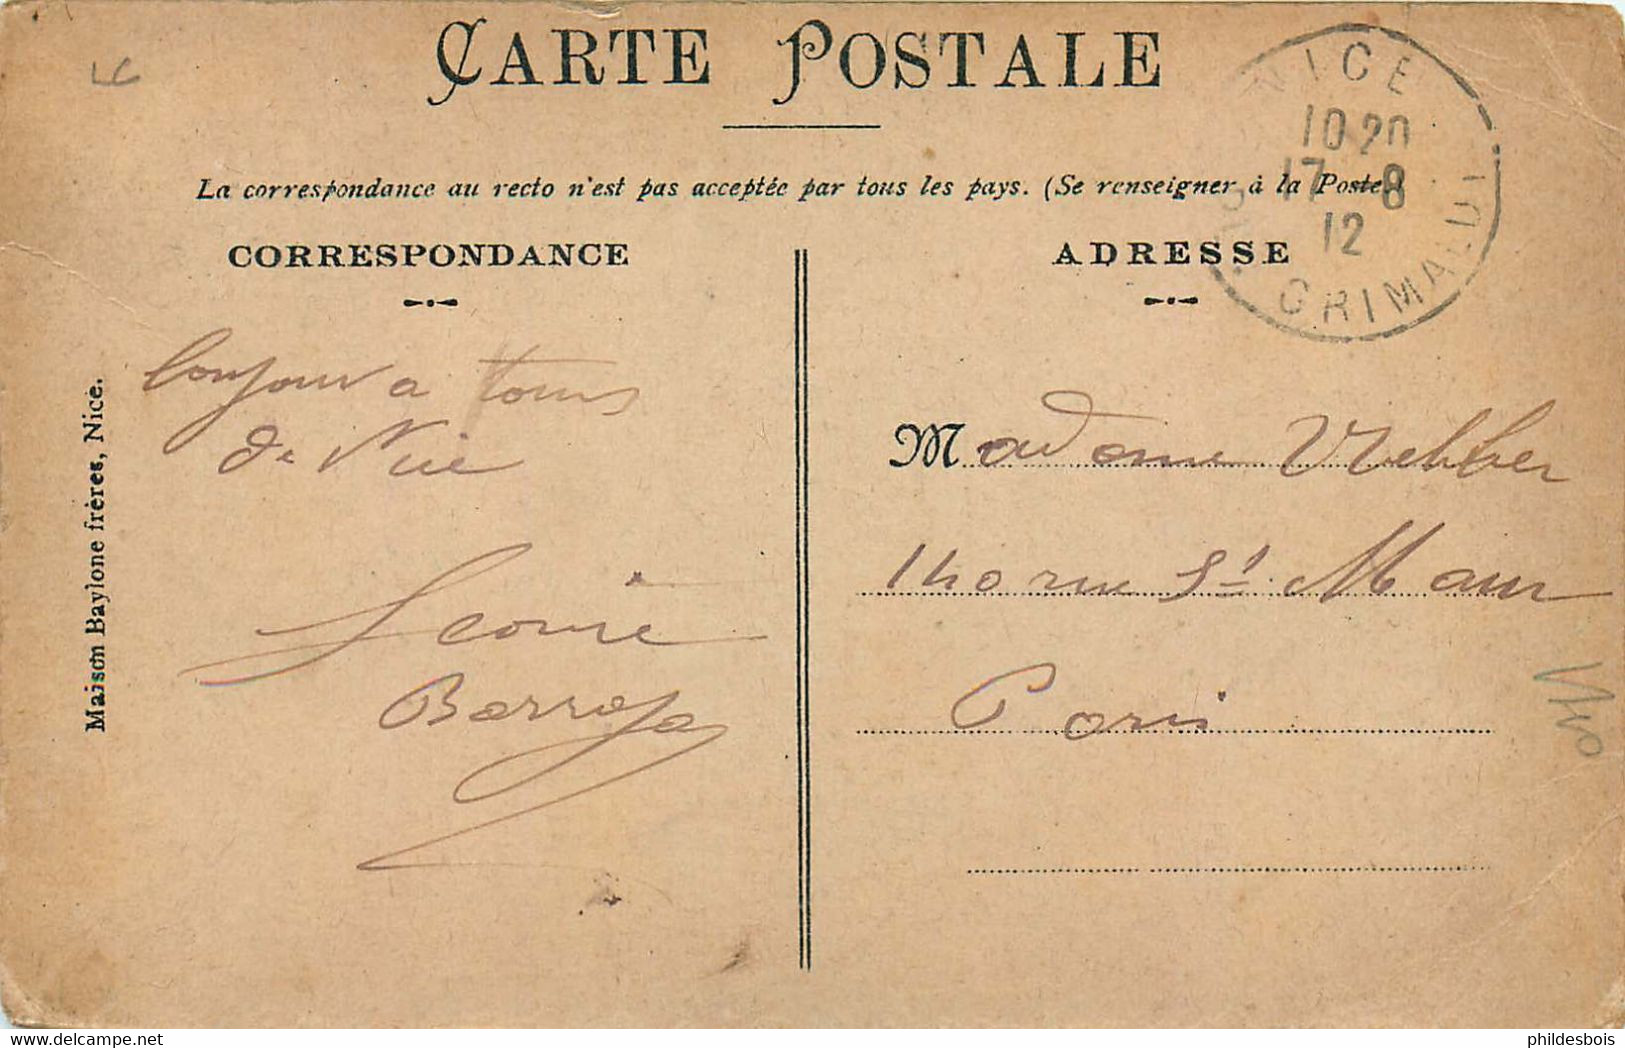 CARTE POSTALE
La correspondance au recto n'est pas acceptée par tous les pays. (Se renseigner à la Poste)
NICE
10 20
17 - 8
12
GRIMALDI
CORRESPONDANCE
ADRESSE
bonjour a tous
de Nice
Leonie
Madame Webber
140 rue St Maur
Paris
Maison Baylone frères, Nice.
delcampe.net
phildesbois